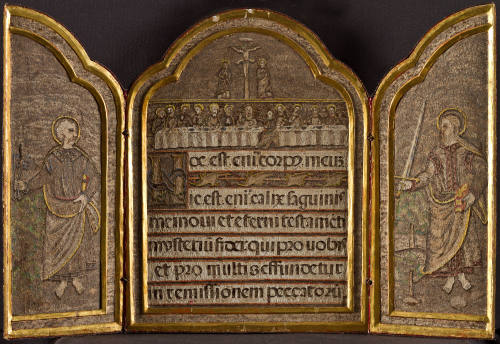 Hoc est eni corpus meuz
hic est eni calix sanguinis
mei novi et eterni testameti
misteriu fidei qui pro vobis
et pro multis effundetur
in remissionem peccatoru